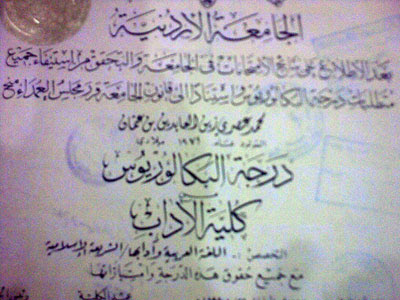 الجامعة الأردنية
بعد الاطلاع على نتائج الامتحانات في الجامعة والتحقق من استيفاء جميع
متطلبات درجة البكالوريوس واستنادا الى قانون الجامعة قرر مجلس العمداء منح
محمد زين العابدين بن عثمان
المولود عام ١٩٧٦ ميلادي
درجة البكالوريوس
كلية الآداب
التخصص : اللغة العربية وآدابها / الشريعة الإسلامية
مع جميع حقوق هذه الدرجة وامتيازاتها